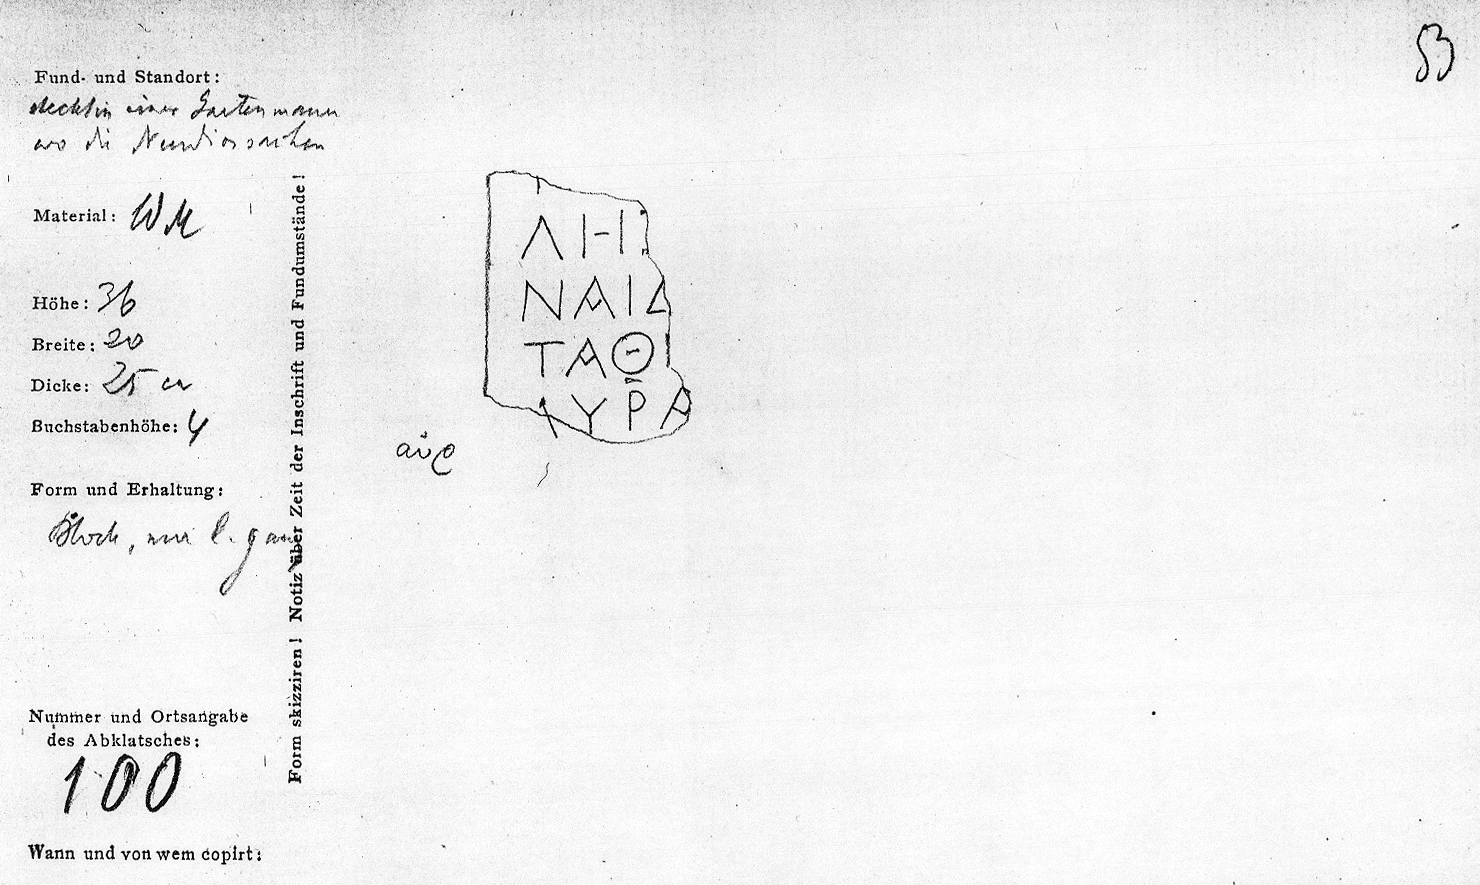 53
Fund- und Standort:
steckt in einer Gartenmauer
wo die
Material: WM
Höhe: 36
Breite: 20
Dicke: 25 cm
Buchstabenhöhe: 4
Form und Erhaltung:
Block, nur l. ganz
Nummer und Ortsangabe
des Abklatsches:
100
Wann und von wem copirt:
Form skizziren! Notiz über Zeit der Inschrift und Fundumstände!
ΛΗΙ
ΝΑΙΔ
ΤΑΘΙ
ΥΡΑ